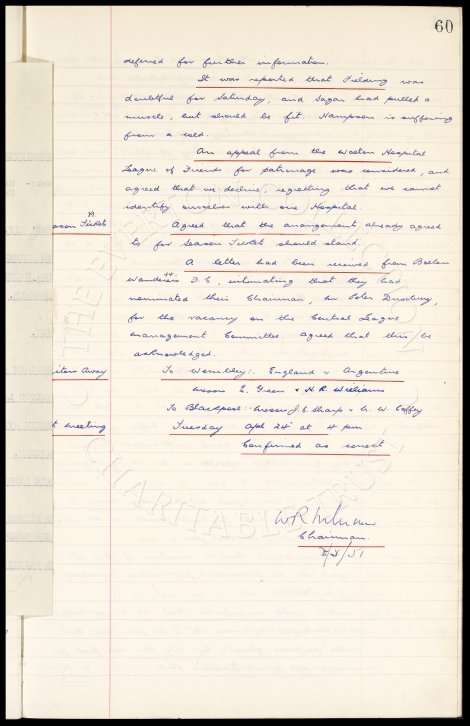 60
deferred for further information.
It was reported that Fielding was
doubtful for Saturday, and Eagan had pulled a
muscle, but should be fit. Hampson is suffering
from a cold.
An appeal from the Walton Hospital
League of Friends for patronage was considered, and
agreed that we decline, regretting that we cannot
identify ourselves with one Hospital.
ason Tickets
Agreed that the arrangements already agreed
to for Season Tickets should stand.
A letter had been received from Bolton
Wanderers F.C, intimating that they had
nominated their Chairman, Mr Peter Duxbury,
for the vacancy on the Central League
Management Committee. Agreed that this be
acknowledged.
itors Away
To Wembley:- England v Argentine
Messrs E. Green & H R Williams
To Blackpool:- Messrs J.C. Sharp & W. Caffey
t meeting
Tuesday Apl 24 at 4 pm
Confirmed as correct
W R Williams
Chairman.
/51
THE EVERTON COLLECTION
CHARITABLE TRUST